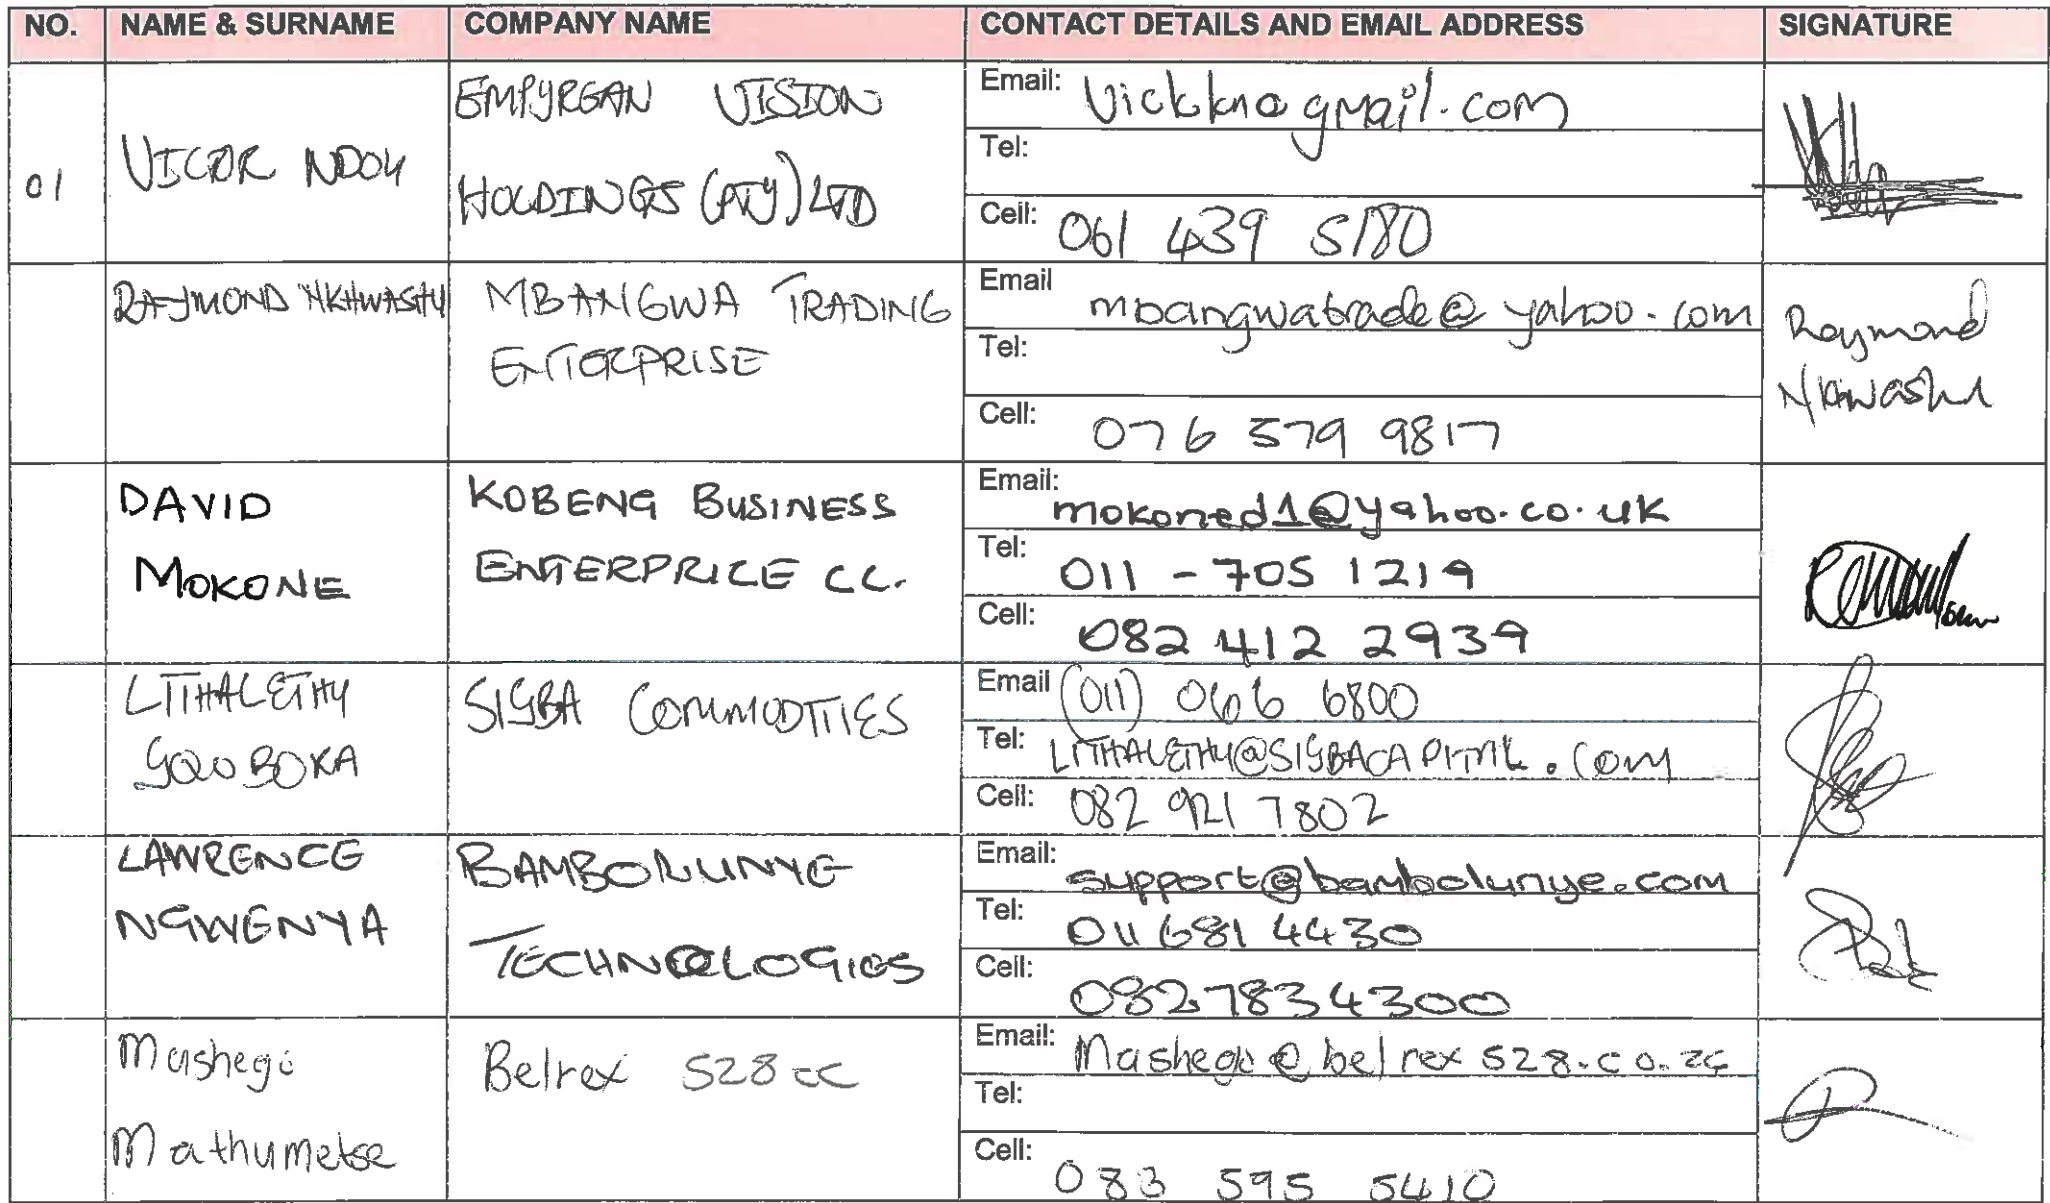 NO. NAME & SURNAME COMPANY NAME CONTACT DETAILS AND EMAIL ADDRESS SIGNATURE
01
VICOR NDOU
EMPYREAN VISION
HOLDINGS (PTY) LTD
Email: Vickkn@gmail.com
Tel:
Cell: 061 439 5180
RAYMOND NKHWASHU
MBANGWA TRADING
ENTERPRISE
Email mbangwatrade@yahoo.com
Tel:
Cell: 076 579 9817
Raymond
Nkhwashu
DAVID
MOKONE
KOBENG BUSINESS
ENTERPRICE CC.
Email: mokoned1@yahoo.co.uk
Tel: 011 - 705 1219
Cell: 082 412 2939
LITHALETHU
GQOBOKA
SIGBA COMMODITIES
Email (011) 066 6800
Tel: LITHALETHU@SIGBACAPITAL.COM
Cell: 082 921 7802
LAWRENCE
NGWENYA
BAMBOLUNYE
TECHNOLOGIES
Email: support@bambolunye.com
Tel: 011 681 4430
Cell: 0827834300
Mashego
Mathumetse
Belrex 528 cc
Email: Mashego@belrex528.co.za
Tel:
Cell: 083 595 5410